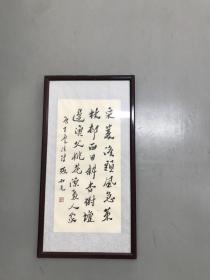 采菱渡頭風急策
杖邨西日斜杏樹壇
邊漁父桃花源裏人家